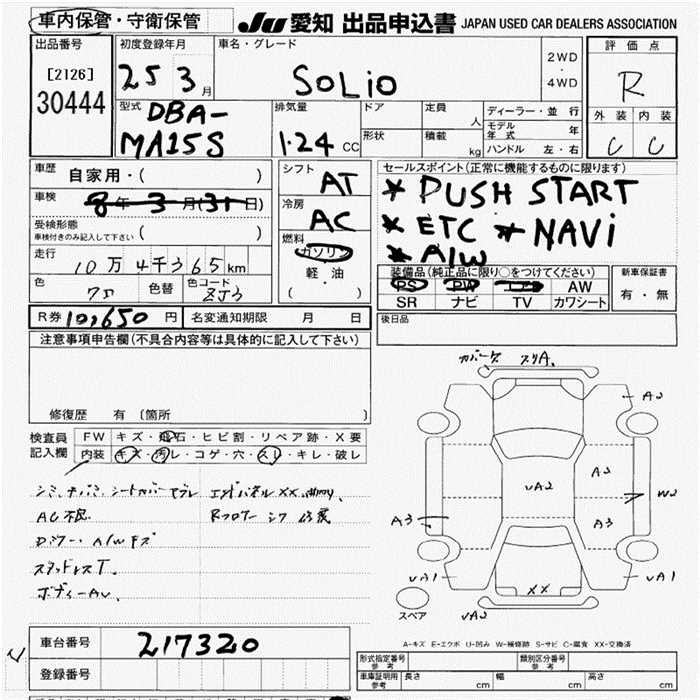 車内保管・守衛保管
JU 愛知 出品申込書 JAPAN USED CAR DEALERS ASSOCIATION
出品番号
[2126]
30444
初度登録年月
25 3月
車名・グレード
SOLiO
2WD
・
4WD
評価点
R
外装 内装
C C
型式
DBA-
MA15S
排気量
1.24 CC
ドア
定員
人
形状
積載
kg
ディーラー・並行
モデル
年式
ハンドル 左・右
車歴
自家用・( )
車検
8年3月(31日)
受検形態
車検付きのみ記入して下さい ( )
走行
10万4千365km
色
色替
色コード
ZJ3
シフト
AT
冷房
AC
燃料
ガソリン
軽・油
( )
セールスポイント(正常に機能するものに限ります)
* PUSH START
* ETC * NAVi
* A/W
装備品(純正品に限り○をつけてください)
PS PW エアB AW
SR ナビ TV カワシート
新車保証書
有・無
R券 10,650 円
名変通知期限 月 日
後日品
注意事項申告欄(不具合内容等は具体的に記入して下さい)
修復歴 有 〔箇所 〕
検査員
記入欄
FW キズ・飛石・ヒビ割・リペア跡・X要
内装 キズ・汚レ・コゲ・穴・スレ・キレ・破レ
AC不良
スタッドレスT.
カバーズ スリA.
A2
A2
vA2
W2
A3
A3
vA1
vA1
XX
vA2
スペア
A-キズ E-エクボ U-凹み W-補修跡 S-サビ C-腐食 XX-交換済
車台番号
217320
登録番号
形式指定番号
参考
類別区分番号
参考
車庫証明用
参考
長さ cm
幅 cm
高さ cm